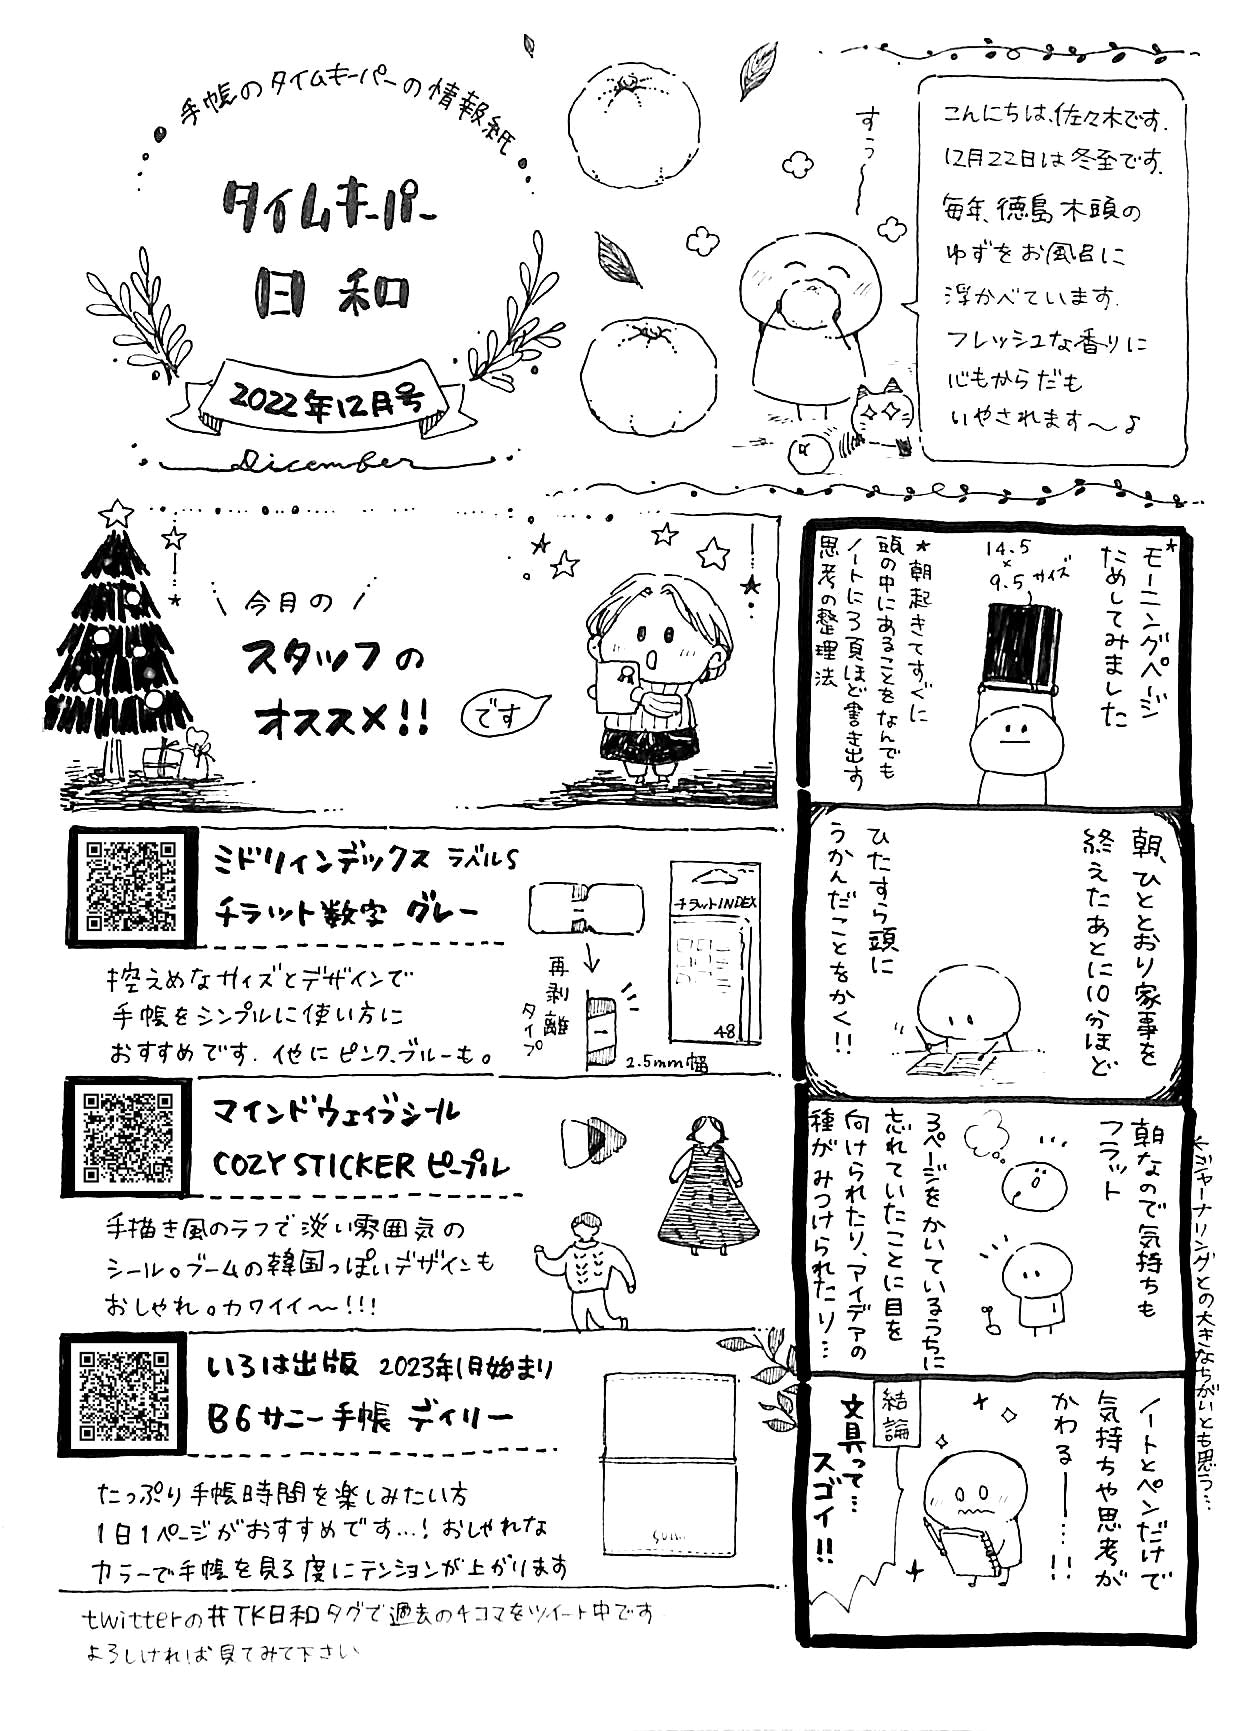 手帳のタイムキーパーの情報紙
タイムキーパー
日和
2022年12月号
Dicember
すぅ〜
こんにちは、佐々木です。
12月22日は冬至です。
毎年、徳島木頭の
ゆずをお風呂に
浮かべています。
フレッシュな香りに
心もからだも
いやされます〜♪
今月の
スタッフの
オススメ!!
です
ミドリインデックス ラベルS
チラット数字 グレー
控えめなサイズとデザインで
手帳をシンプルに使い方に
おすすめです。他にピンク、ブルーも。
チラットINDEX
48
再剥離
タイプ
2.5mm幅
マインドウェイブシール
COZY STICKER ピープル
手描き風のラフで淡い雰囲気の
シール。ブームの韓国っぽいデザインも
おしゃれ。カワイイ〜!!!
いろは出版 2023年1月始まり
B6サニー手帳 デイリー
たっぷり手帳時間を楽しみたい方
1日1ページがおすすめです…!おしゃれな
カラーで手帳を見る度にテンションが上がります
twitterの#TK日和タグで過去の4コマをツイート中です
よろしければお見てみて下さい
*モーニングページ
ためしてみました
14.5
×
9.5サイズ
*朝起きてすぐに
頭の中にあることをなんでも
ノートに3頁ほど書き出す
思考の整理法
朝、ひととおり家事を
終えたあとに10分ほど
ひたすら頭に
うかんだことをかく!!
朝なので気持ちも
フラット
3ページをかいているうちに
忘れていたことに目を
向けられたり、アイデアの
種がみつけられたり…
←ジャーナリングとの大きなちがいとも思う…
ノートとペンだけで
気持ちや思考が
かわる――…!!
結論
文具って…
スゴイ!!